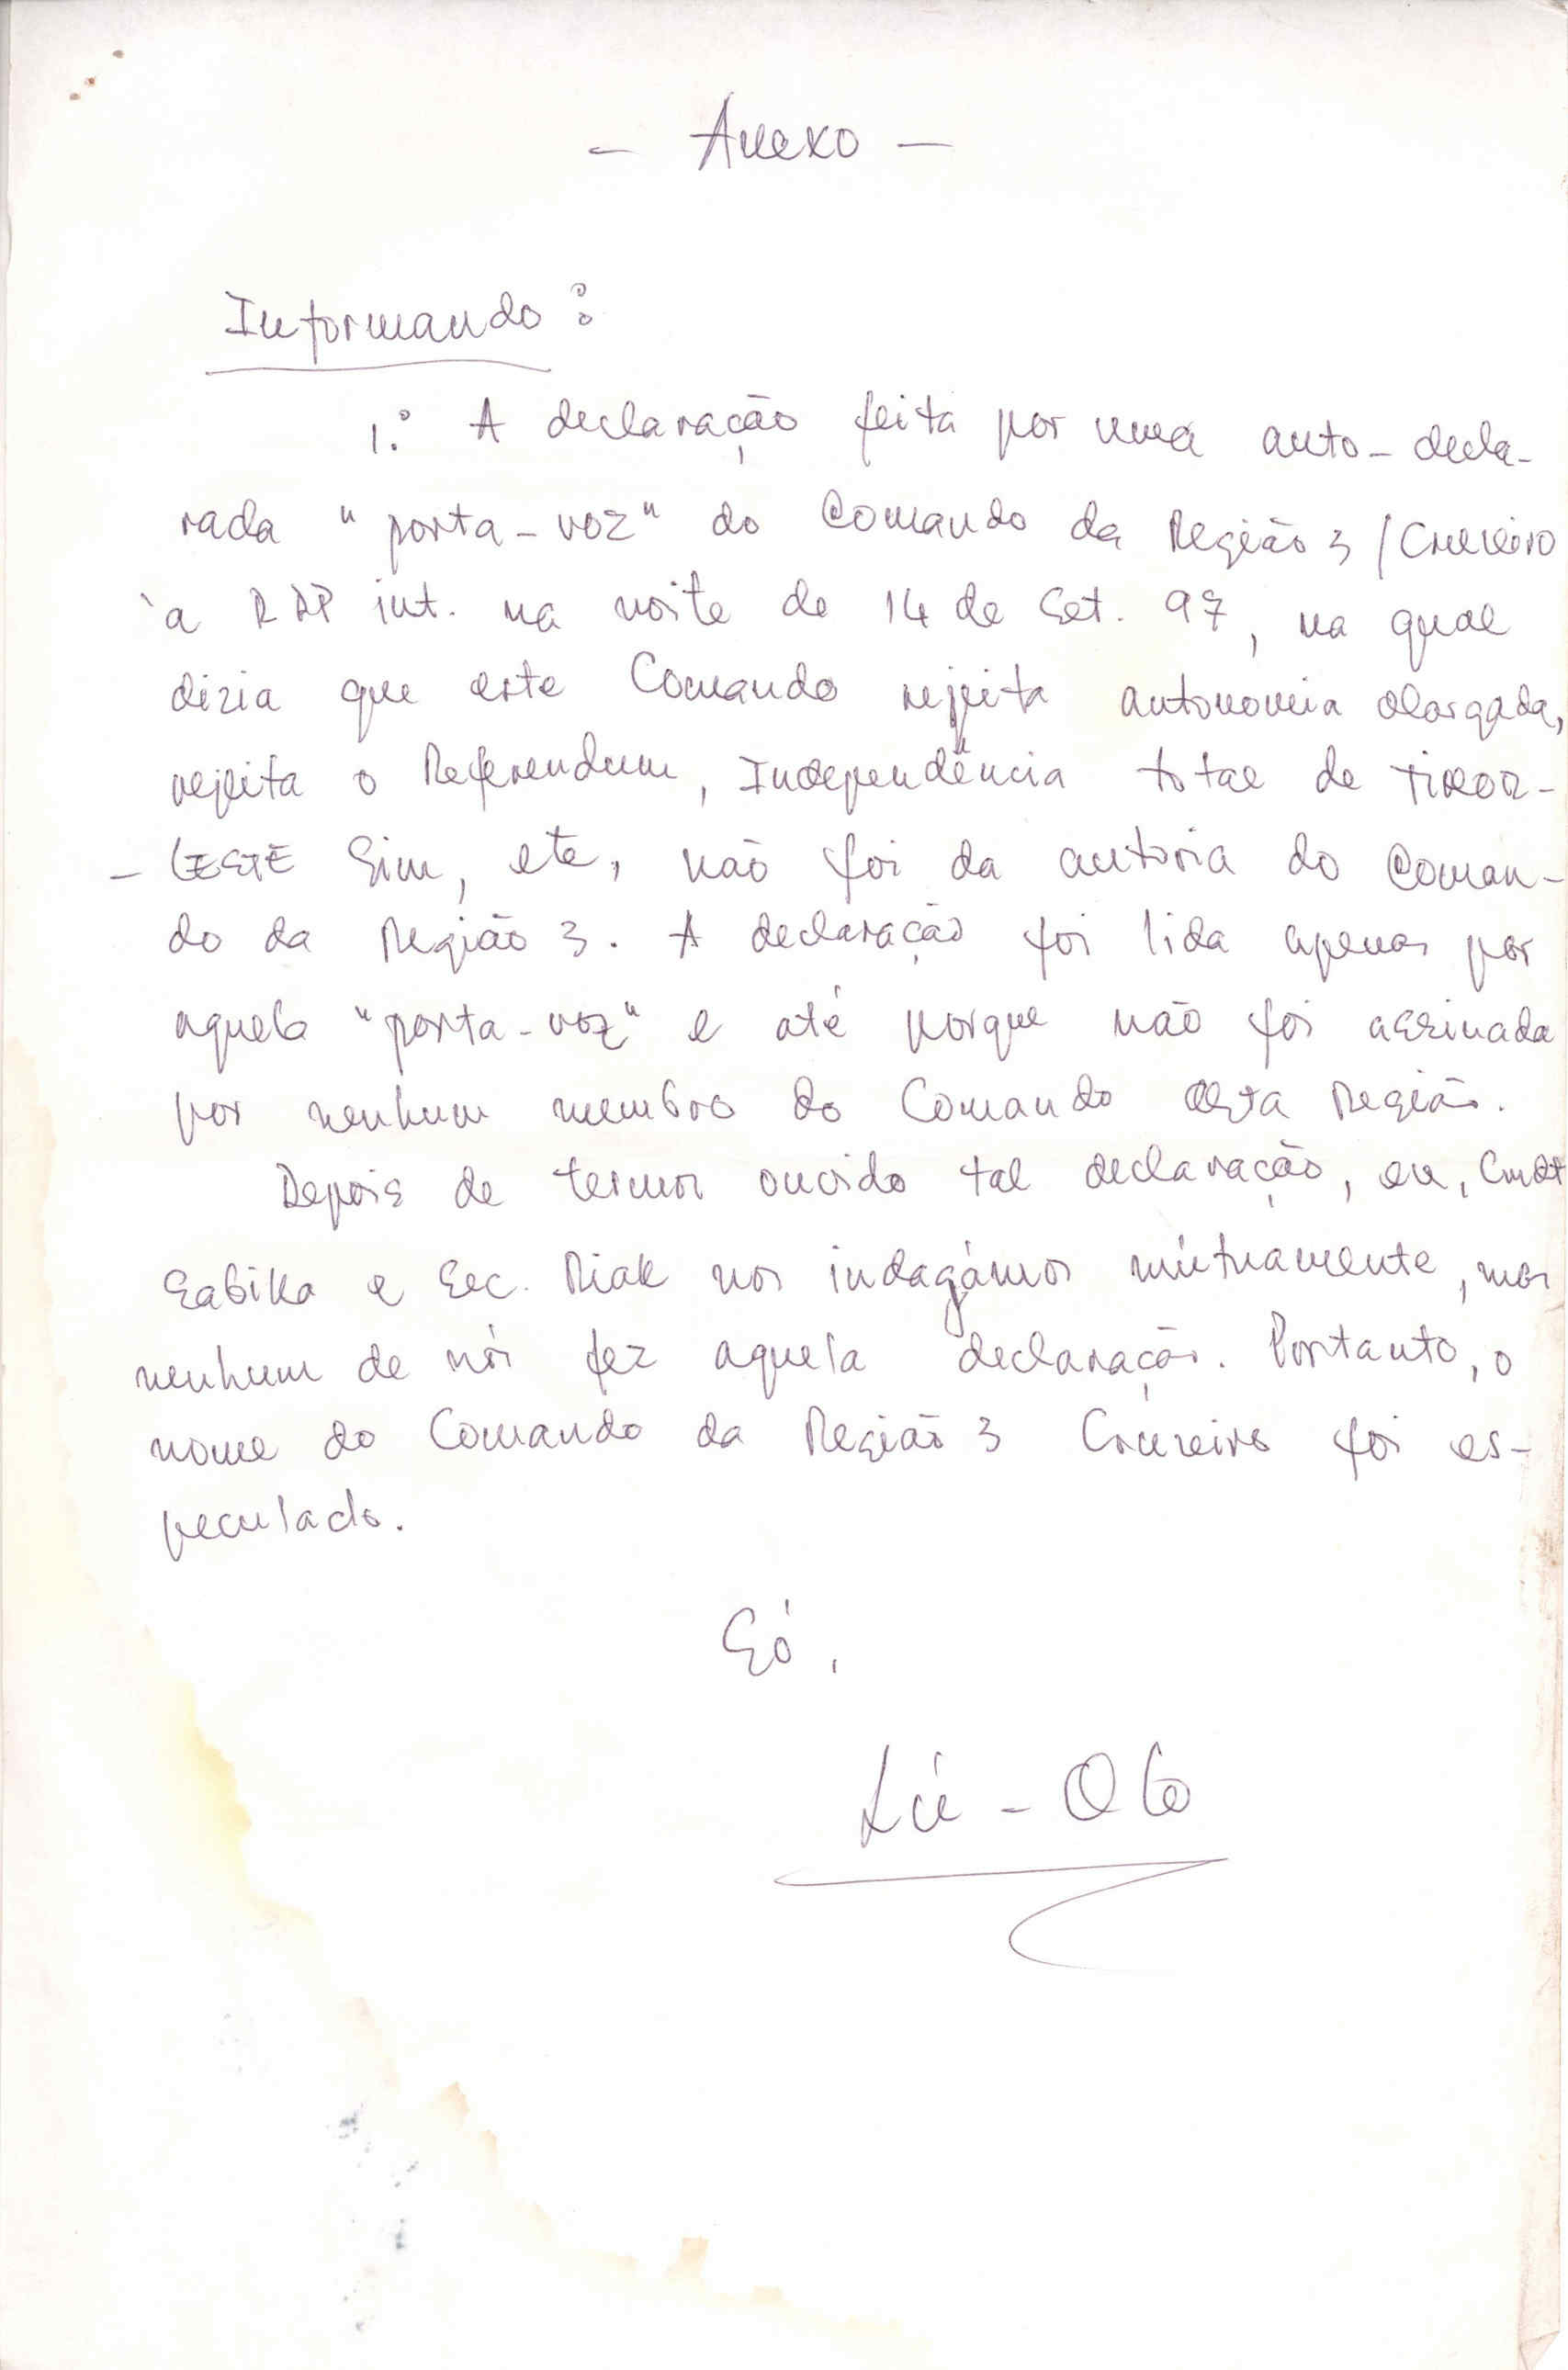 - Anexo -
Informando:
1.º A declaração feita por uma auto-decla-
rada "porta-voz" do Comando da Região 3/Cruzeiro
à RDP int. na noite de 14 de Set. 97, na qual
dizia que este Comando rejeita autonomia alargada,
rejeita o Referendum, Independência total de TIMOR-
-LESTE Sim, etc, não foi da autoria do Coman-
do da Região 3. A declaração foi lida apenas por
aquela "porta-voz" e até porque não foi assinada
por nenhum membro do Comando desta Região.
Depois de termos ouvido tal declaração, eu, Cmdt
Sabika e Sec. Riak nos indagámos mútuamente, mas
nenhum de nós fez aquela declaração. Portanto, o
nome do Comando da Região 3 Cruzeiro foi es-
peculado.
Só,
Lú-Olo